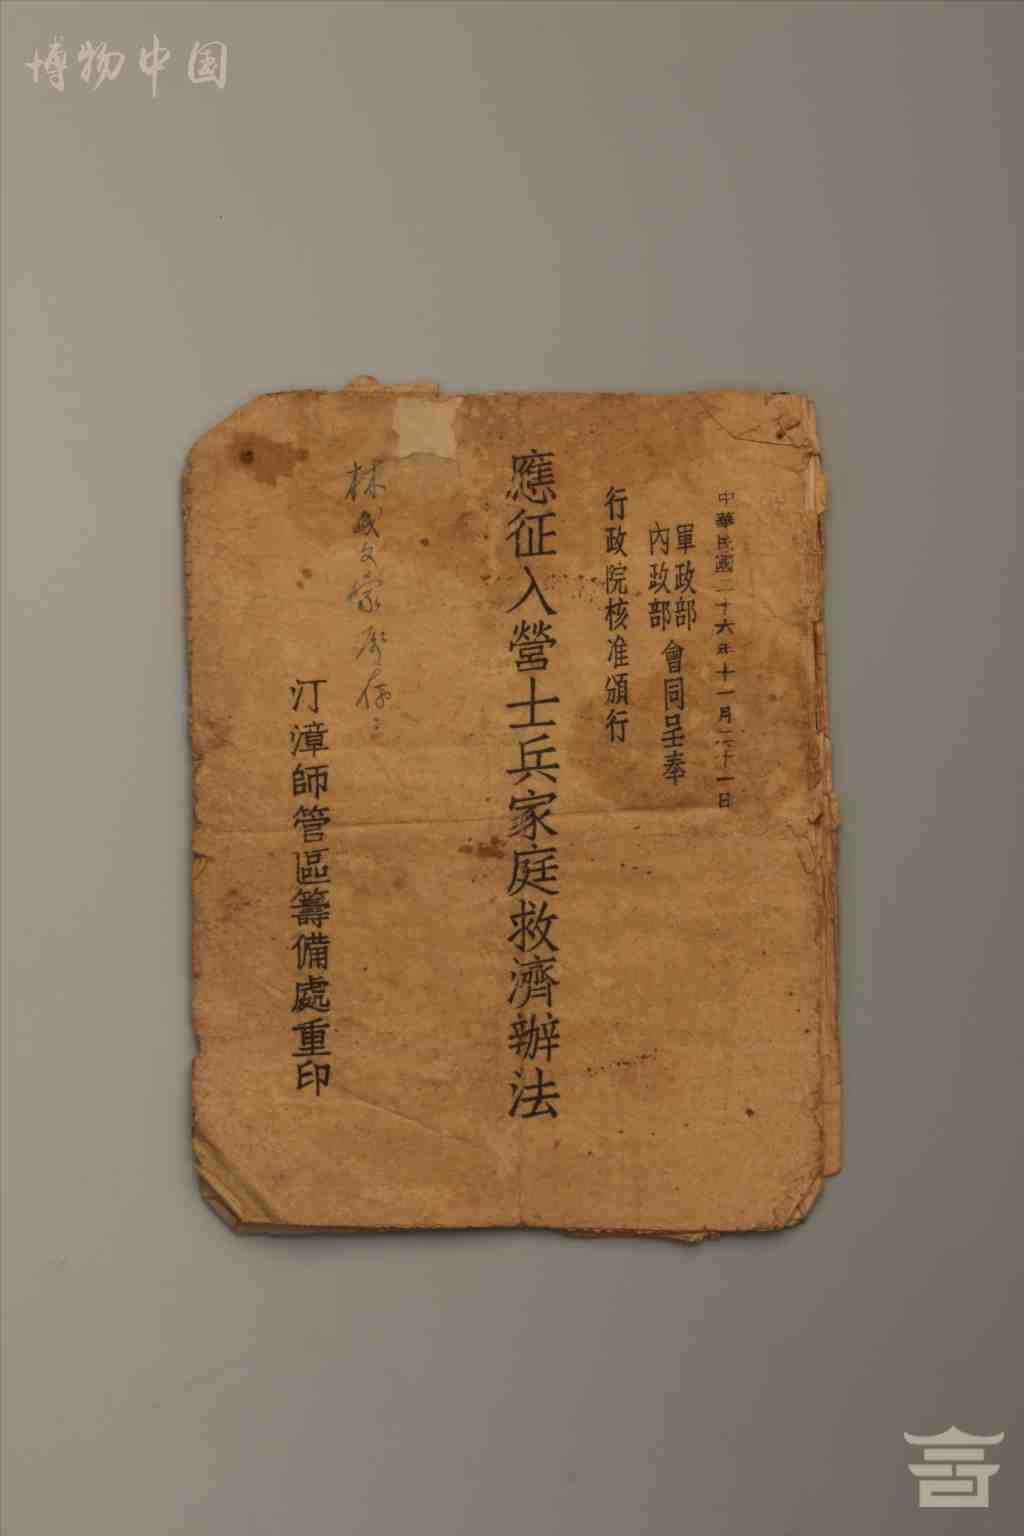 博物中国
中華民國二十六年十一月二十一日
軍政部
內政部
會同呈奉
行政院核准頒行
應征入營士兵家庭救濟辦法
林
文家
汀漳師管區籌備處重印